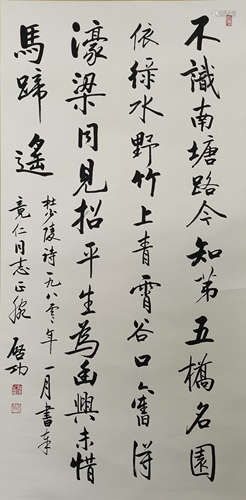 不識南塘路今知第五橋名園
依綠水野竹上青霄谷口舊得
濠梁同見招平生為幽興未惜
馬蹄遙
杜少陵詩一九八零年一月書奉
竟仁同志正腕 啓功